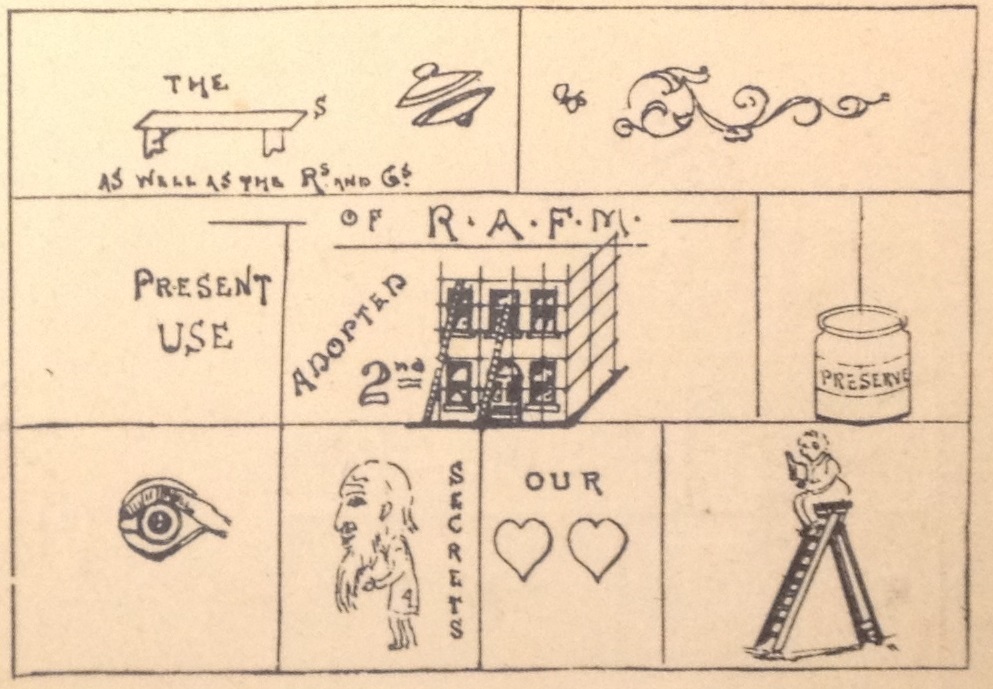 THE
S
AS WELL AS THE Rs. AND Gs.
OF R·A·F·M·
PRESENT
USE
ADOPTED
2nd
PRESERVE
SECRETS
4
OUR